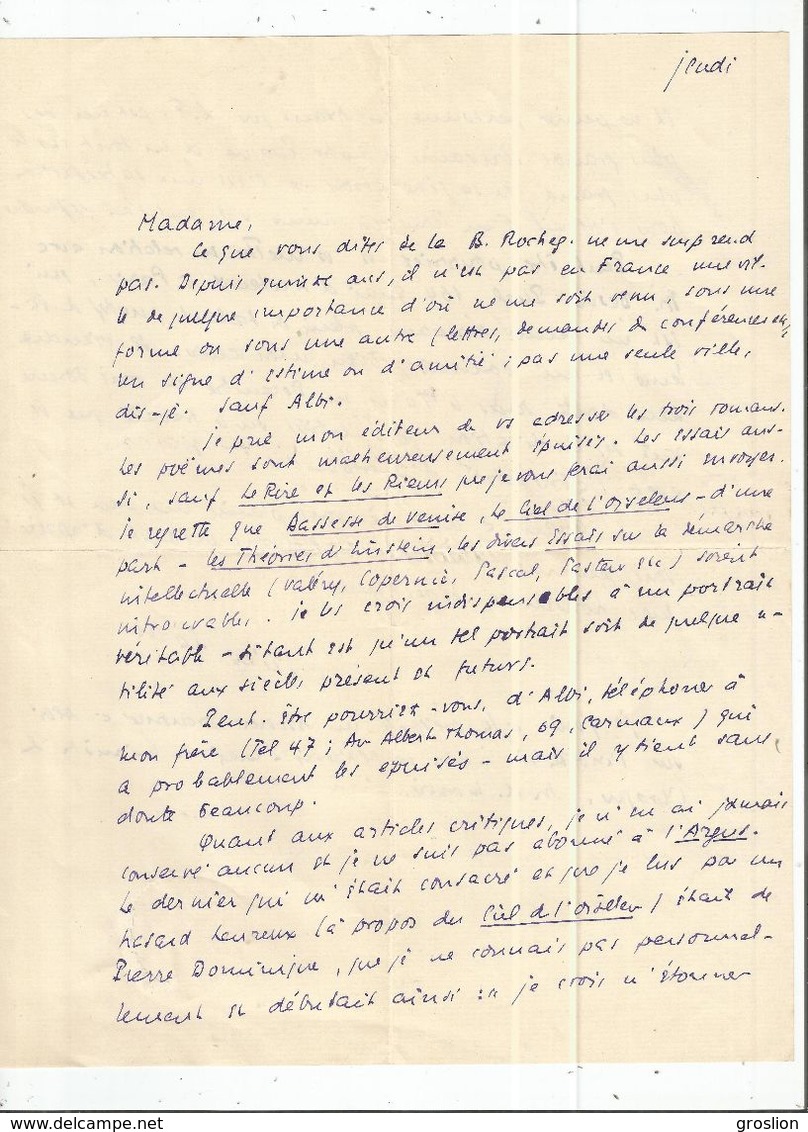 jeudi
Madame,
Ce que vous dites de la B. Rocheg. ne me surprend
pas. Depuis quinze ans, il n'est pas en France une vil-
le de quelque importance d'où ne me soit venu, sous une
forme ou sous une autre (lettres, demandes de conférences etc)
un signe d'estime ou d'amitié ; pas une seule ville,
dis-je. Sauf Albi.
Je prie mon éditeur de vs adresser les trois romans.
Les poëmes sont malheureusement épuisés. Les essais aus-
si, sauf Le Rire et les Rieurs que je vous ferai aussi envoyer.
Je regrette que Bassesse de Venise, Le Ciel de l'Oiseleur - d'une
part - les Théories d'Einstein, les divers Essais sur la démarche
intellectuelle (Valéry, Copernic, Pascal, Pasteur etc) soient
introuvables. Je les crois indispensables à un portrait
véritable - si tant est qu'un tel portrait soit de quelque u-
tilité aux siècles présent et futurs.
Peut-être pourriez-vous, d'Albi, téléphoner à
mon frère (Tel 47 ; Av Albert Thomas, 69, Carmaux) qui
a probablement les épuisés - mais il y tient sans
doute beaucoup.
Quant aux articles critiques, je n'en ai jamais
conservé aucun et je ne suis pas abonné à l'Argus.
Le dernier qui m'était consacré et que je lus par un
hasard heureux (à propos du Ciel de l'Oiseleur) était de
Pierre Dominique, que je ne connais pas personnel-
lement et débutait ainsi : " je crois n'étonner
www.delcampe.net
groslion